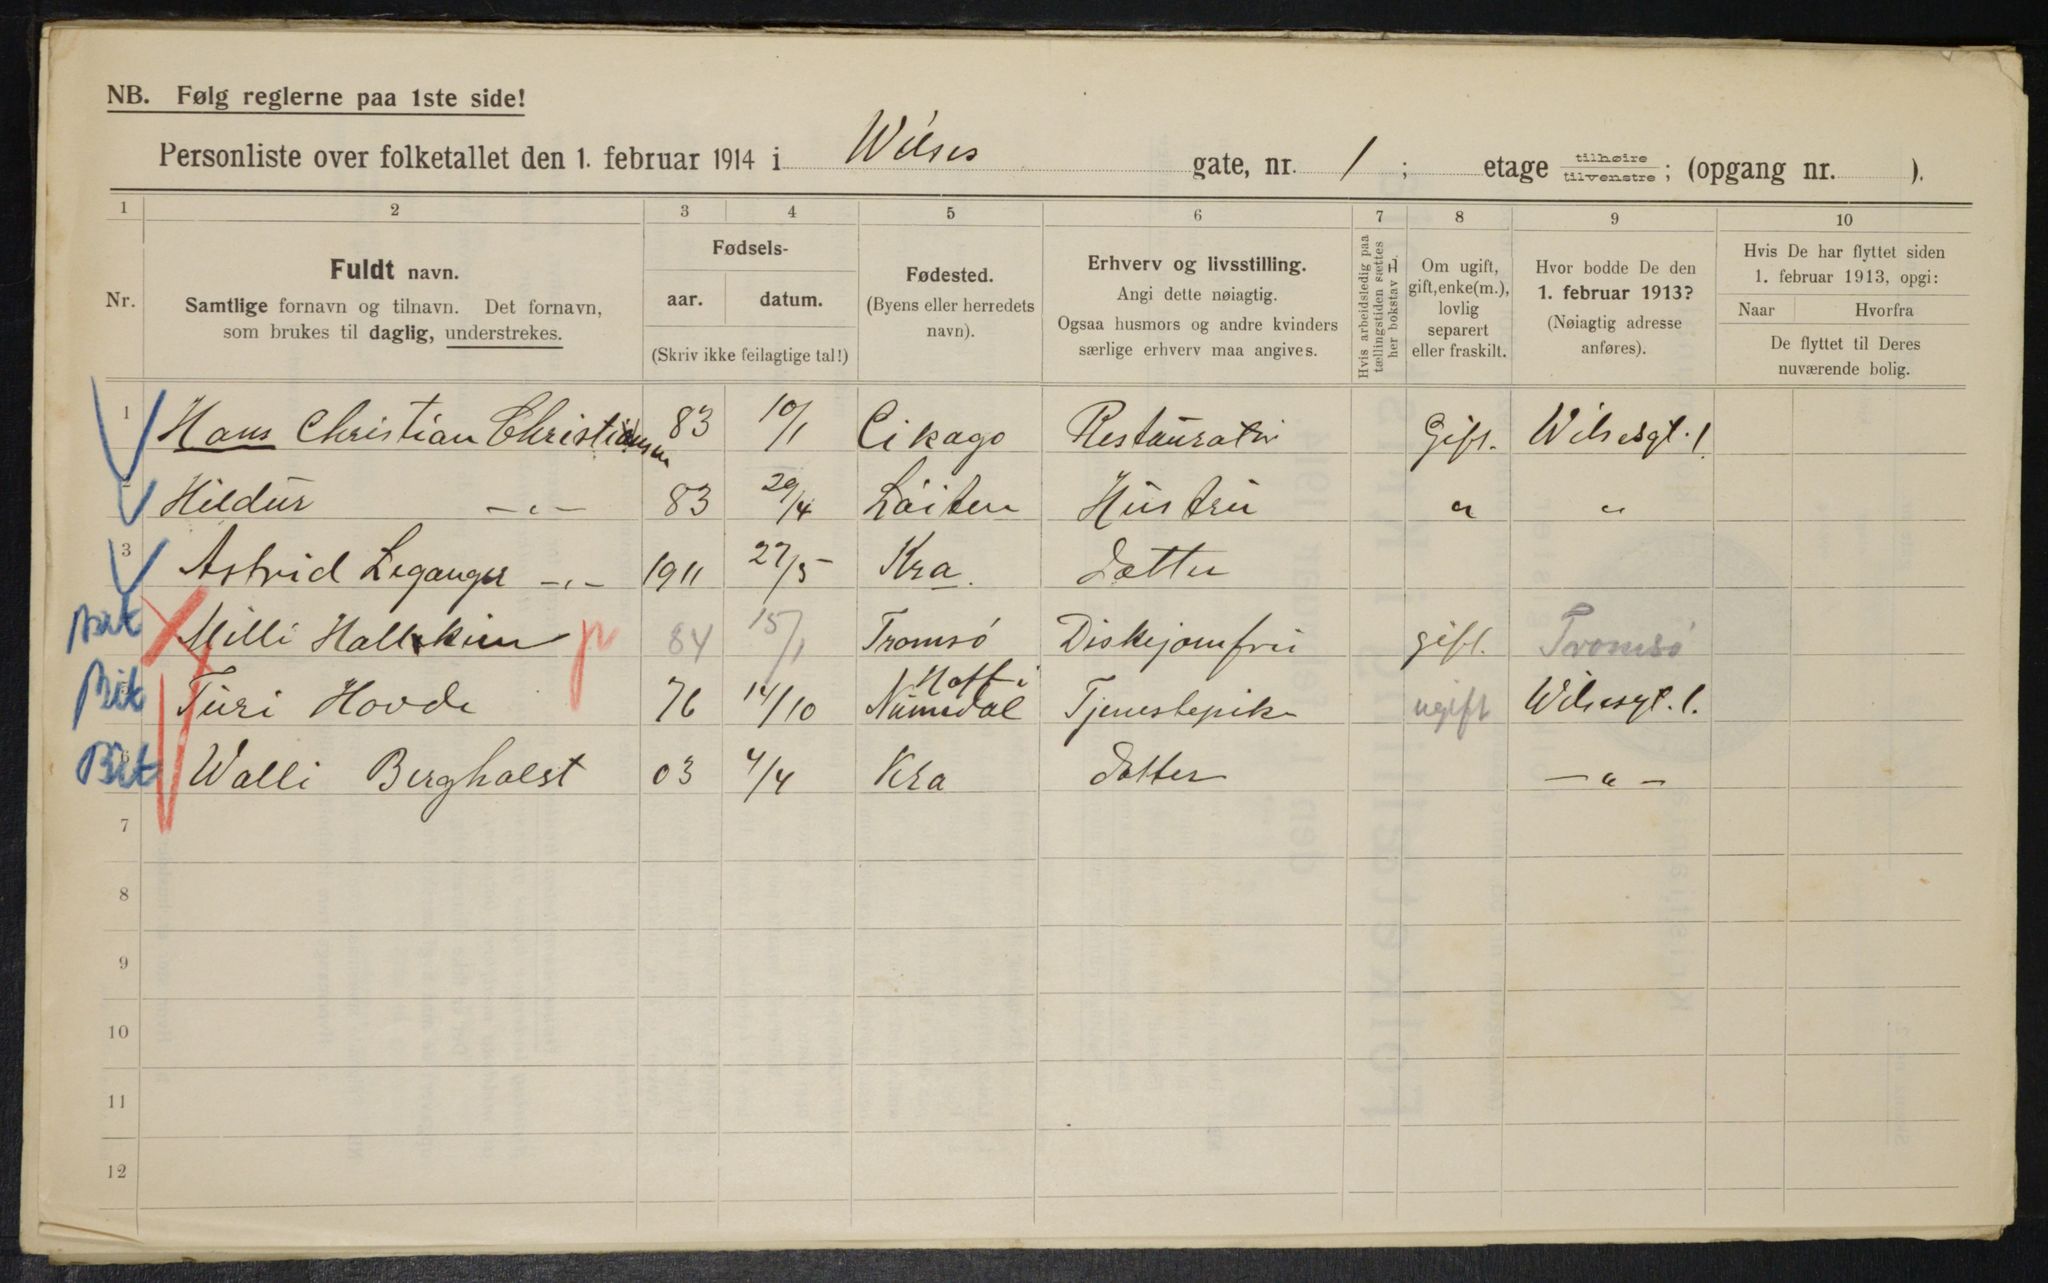 NB. Følg reglerne paa 1ste side!
Personliste over folketallet den 1. februar 1914 i Wilses gate, nr. 1 ; etage tilhøire tilvenstre ; (opgang nr. ).
1 2 3 4 5 6 7 8 9 10
Nr.
Fuldt navn.
Samtlige fornavn og tilnavn. Det fornavn,
som brukes til daglig, understrekes.
Fødsels-
aar. datum.
(Skriv ikke feilagtige tal!)
Fødested.
(Byens eller herredets
navn).
Erhverv og livsstilling.
Angi dette nøiagtig.
Ogsaa husmors og andre kvinders
særlige erhverv maa angives.
Hvis arbeidsledig paa
tællingstiden sættes
her bokstav L.
Om ugift,
gift, enke(m.),
lovlig
separert
eller fraskilt.
Hvor bodde De den
1. februar 1913?
(Nøiagtig adresse
anføres).
Hvis De har flyttet siden
1. februar 1913, opgi:
Naar Hvorfra
De flyttet til Deres
nuværende bolig.
1 Hans Christian Christiansen 83 10/1 Cikago Restauratør Gift. Wilsesgt. 1.
2 Hildur -"- 83 29/4 Löiten Hustru " "
3 Astrid Leganger -"- 1911 27/5 Kra. Datter
Milli Hallskien 84 15/1 Tromsö Diskejomfru gift. Tromsö
Bit Turi Hovde 76 14/10 Numedal Tjenestepike ugift Wilsesgt. 1.
Bit Walli Bergholst 03 4/4 Kra Datter -"-
7
8
9
10
11
12